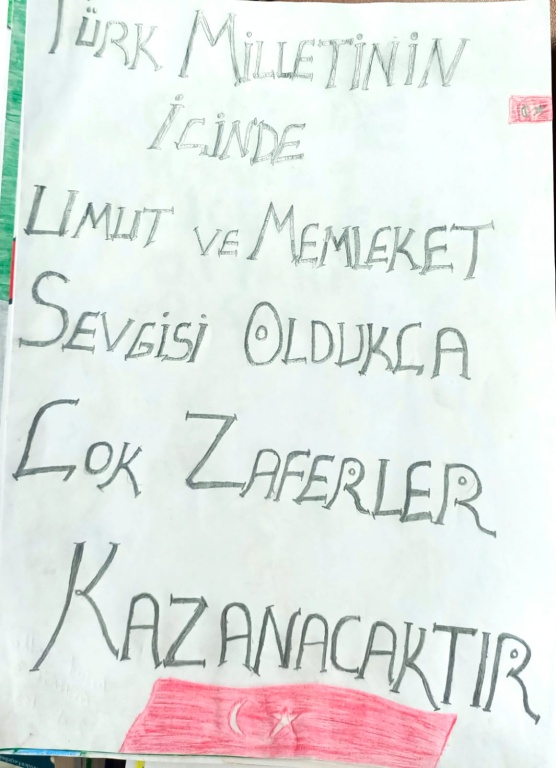 TÜRK MİLLETİNİN
İÇİNDE
UMUT VE MEMLEKET
SEVGİSİ OLDUKÇA
ÇOK ZAFERLER
KAZANACAKTIR